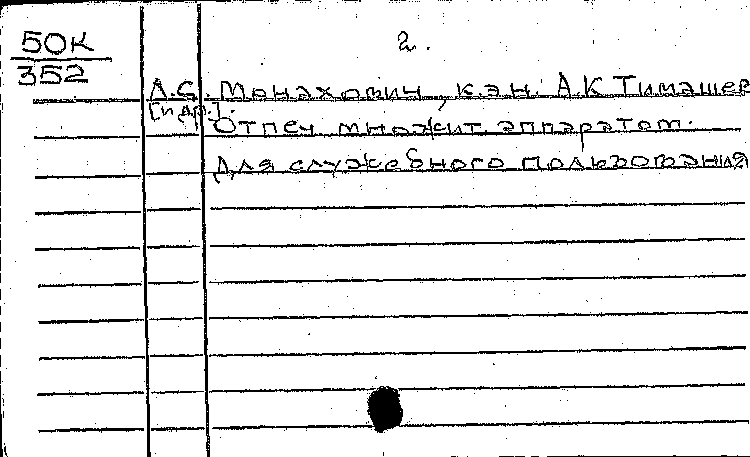 50К
352
2.
Л.С. Монахович, к.э.н. А.К Тимашев
[и др.].
Отпеч множит. аппаратом.
Для служебного пользования